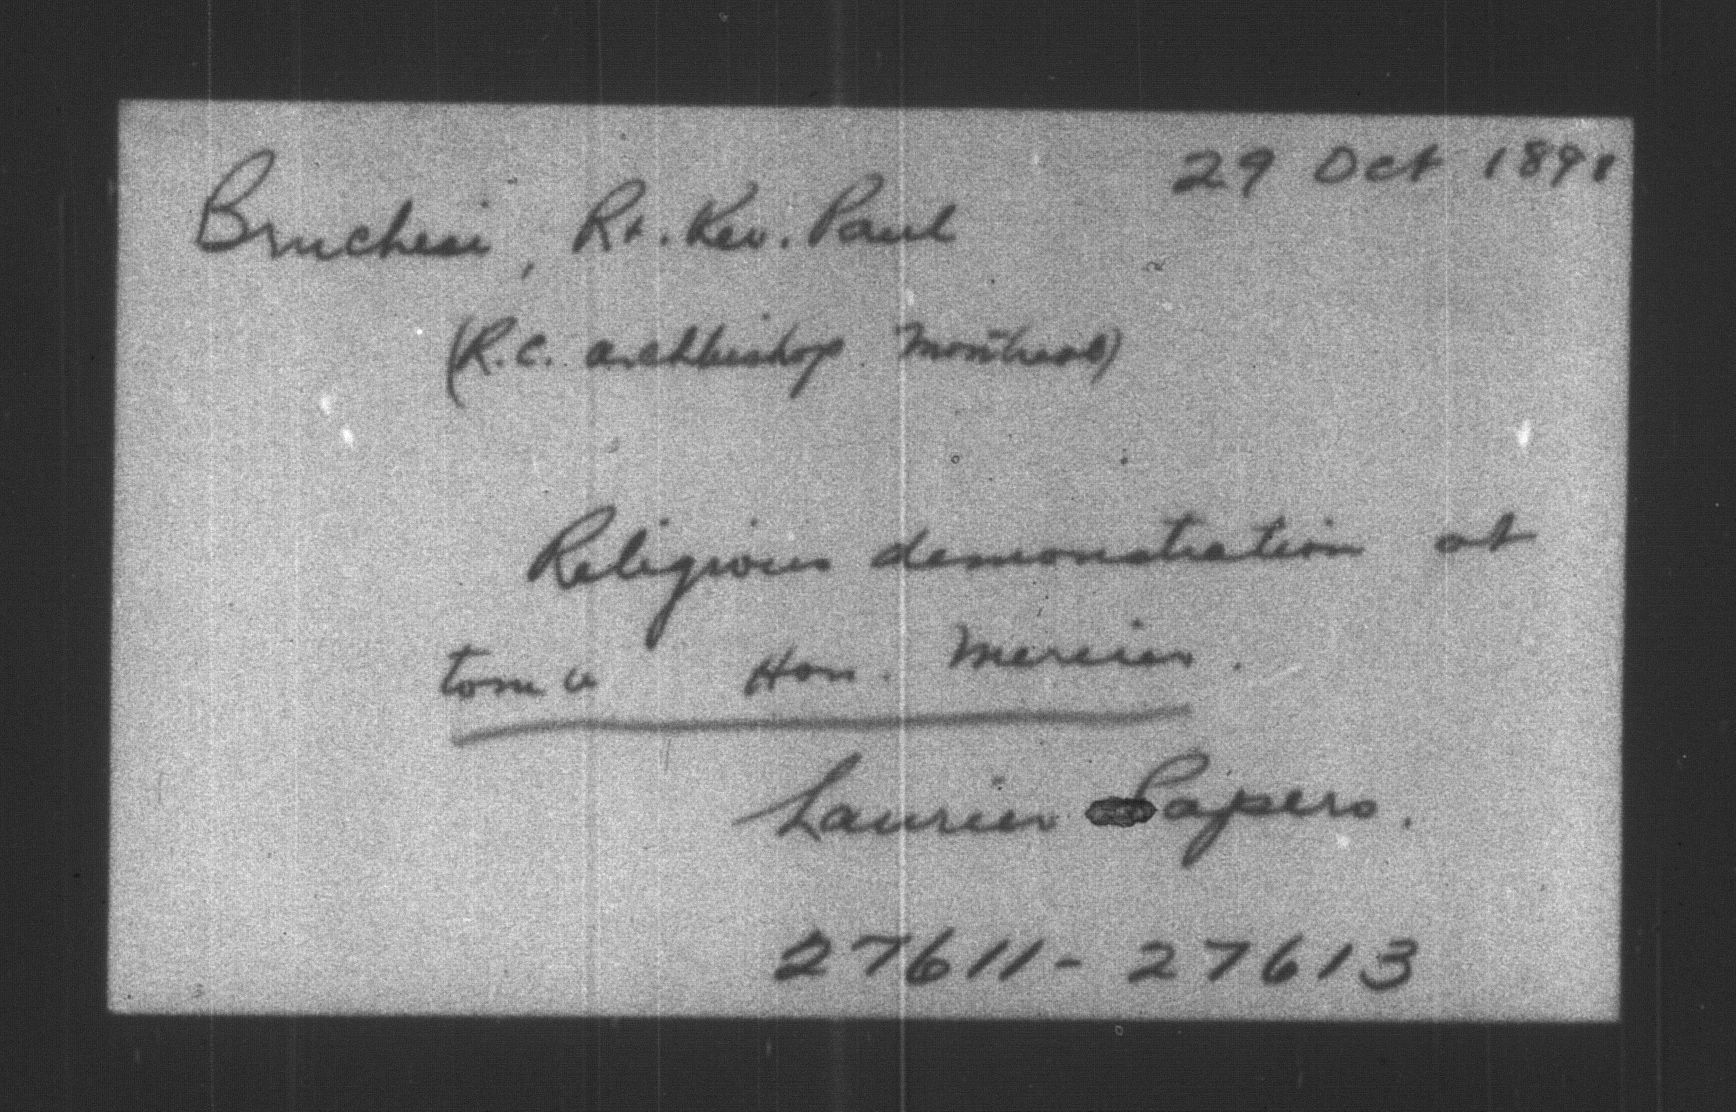 29 Oct 1898
Bruchesi, Rt. Rev. Paul
(R.C. archbishop Montreal)
Religious demonstration at
tomb Hon. Mercier.
Laurier Papers.
27611-27613